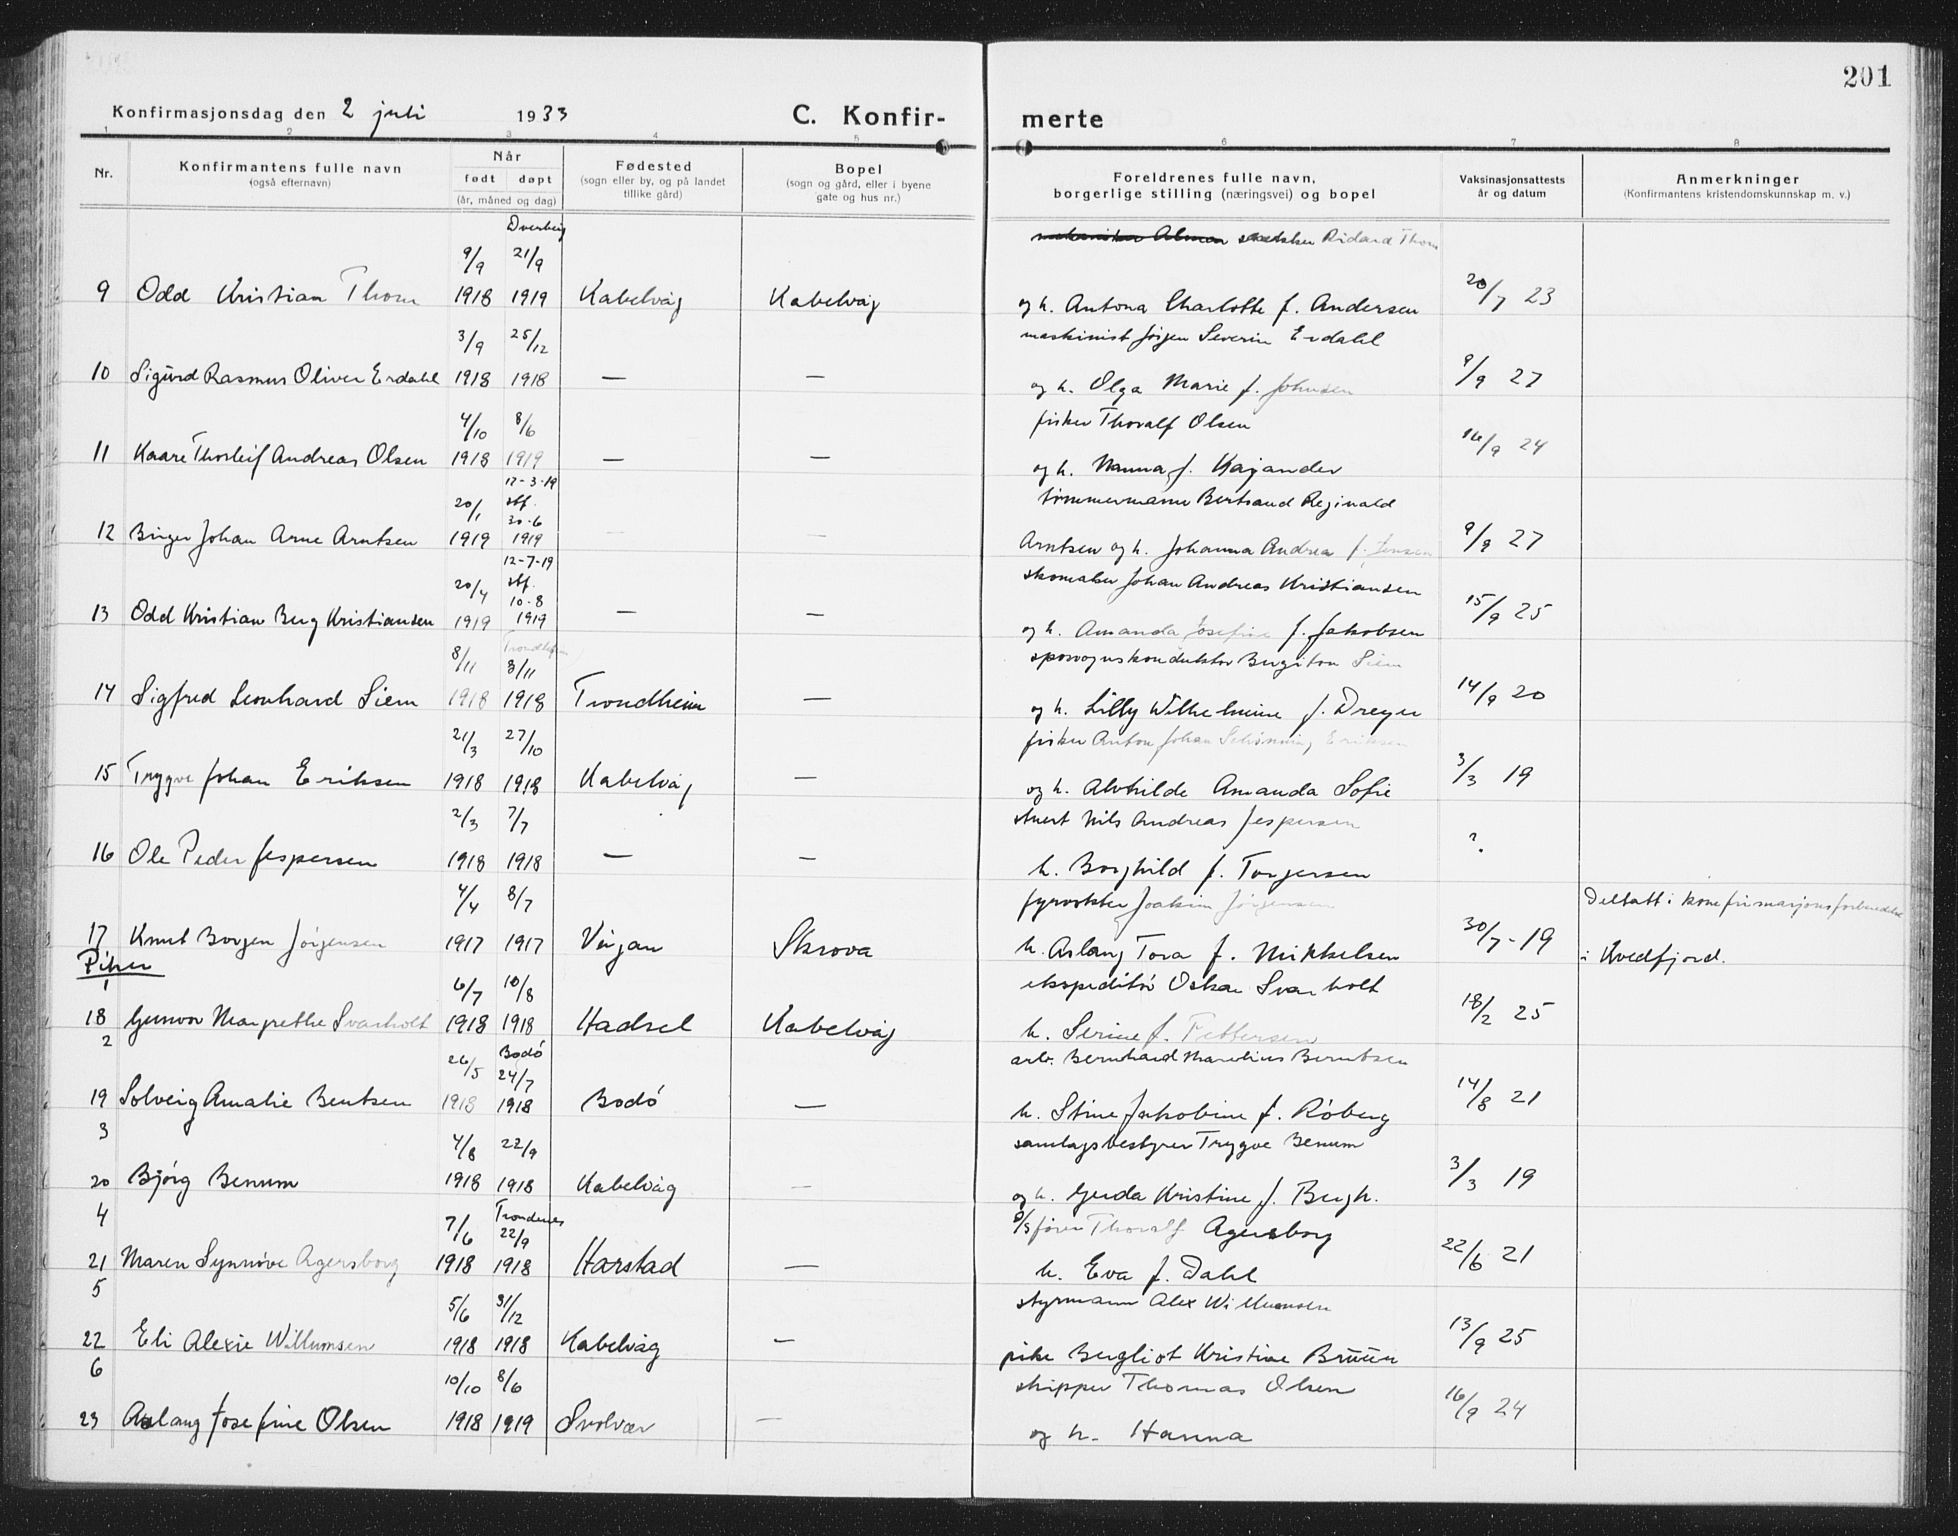 201
Konfirmasjonsdag den 2 juli 1933 C. Konfir- merte
1 2 3 4 5 6 7 8
Nr. Konfirmantens fulle navn (også efternavn) Når født døpt (år, måned og dag) Fødested (sogn eller by, og på landet tillike gård) Bopel (sogn og gård, eller i byene gate og hus nr.) Foreldrenes fulle navn, borgerlige stilling (næringsvei) og bopel Vaksinasjonsattests år og datum Anmerkninger (Konfirmantens kristendomskunnskap m. v.)
Dverberg
9/9 21/9 Ridard Thom
9 Odd Kristian Thom 1918 1919 Kabelvåg Kabelvåg og h. Antona Charlotte f. Andersen 20/7 23
3/9 25/12 maskinist Jørgen Severin Erdahl
10 Sigurd Rasmus Oliver Erdahl 1918 1918 — — og h. Olga Marie f. Johnsen 9/9 27
4/10 8/6 fisker Thoralf Olsen
11 Kaare Thorleif Andreas Olsen 1918 1919 — — og h. Nanna f. Kajander 16/9 24
17-3-19
20/1 stf. 30-6 tømmermann Bertrand Reginald
12 Birger Johan Arne Arntsen 1919 1919 — — Arntsen og h. Johanna Andrea f. Jensen 9/9 27
12-7-19
20/4 stf. 10-8 skomaker Johan Andreas Kristiansen
13 Odd Kristian Berg Kristiansen 1919 1919 — — og h. Amanda Josefine f. Jakobsen 15/9 25
Trondheim
8/11 3/11 sporvognskonduktør Birgiton Siem
14 Sigfred Leonhard Siem 1918 1918 Trondheim — og h. Lilly Wilhelmine f. Dreyer 14/9 20
21/3 27/10 fisker Anton Johan Schønning Eriksen
15 Trygve Johan Eriksen 1918 1918 Kabelvåg — og h. Alvhilde Amanda Sofie 3/3 19
2/3 7/7 stuert Nils Andreas Jespersen
16 Ole Peder Jespersen 1918 1918 — — h. Borghild f. Torgersen ?
4/4 8/7 fyrvokter Joakim Jørgensen Deltatt i konfirmasjonsforberedelse
17 Knut Borgen Jørgensen 1917 1917 Vågan Skrova h. Aslaug Tora f. Mikkelsen 30/7-19 i Kvedfjord.
Piker
1 6/7 10/8 ekspeditør Oskar Svarholt
18 Gunvor Margrethe Svarholt 1918 1918 Hadsel Kabelvåg h. Serine f. Pettersen 18/2 25
2 26/5 Bodø 24/7 arb. Bernhard Marelius Berntsen
19 Solveig Amalie Bentsen 1918 1918 Bodø — h. Stine Jakobine f. Røberg 14/8 21
3 4/8 22/9 samlagsbestyrer Trygve Benum
20 Bjørg Benum 1918 1918 Kabelvåg — og h. Gerda Kristine f. Bergh. 3/3 19
4 7/6 Trondenes 22/9 D/S fører Thoralf Agersborg
21 Maren Synnøve Agersborg 1918 1918 Harstad — h. Eva f. Dahl 22/6 21
5 5/6 31/12 styrmann Alex Willumsen
22 Eli Alexie Willumsen 1918 1918 Kabelvåg — pike Bergliot Kristine Bruun 13/9 25
6 10/10 8/6 skipper Thomas Olsen
23 Aslaug Josefine Olsen 1918 1919 Svolvær — og h. Hanna 16/9 24